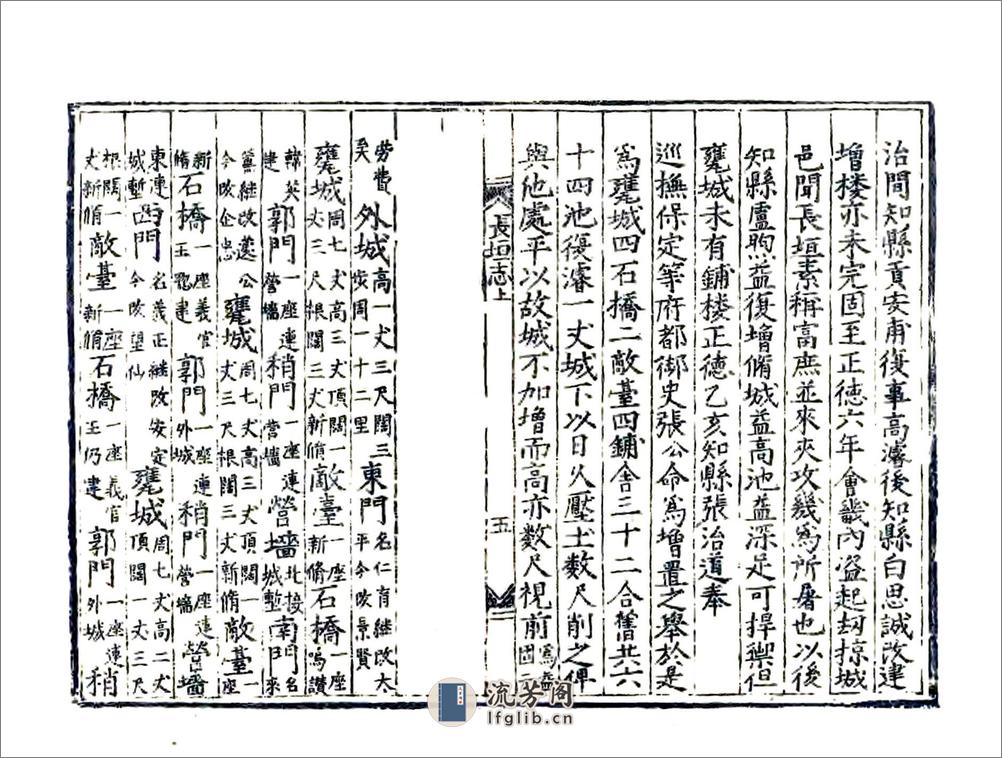 治間知縣貢安甫復事高濬後知縣白思誠改建
增楼亦未完固至正德六年會畿內盜起刼掠城
邑聞長垣素称高庶並來夾攻幾爲所屠也以後
知縣盧煦益復增脩城益高池益深足可捍禦但
甕城未有鋪楼正德乙亥知縣張治道奉
巡撫保定等府都御史張公命爲增置之舉於是
爲甕城四石橋二敵臺四鋪舍三十二合舊共六
十四池復濬一丈城下以日久壓土数尺削之俾
與他處平以故城不加增而高亦数尺視前爲益固二
長垣志上
五
劳費矣外城高一丈三尺闊三步周一十二里東門名仁育継改太平今改景賢
甕城周七丈高三丈頂闊一丈二尺根闊三丈新脩敵臺一座新脩石橋一座鳴讃
韓英建郭門一座連營墻稍門一座連營墻營墻北接城塹南門名來
薰継改遵公今改企忠甕城周七丈高三丈頂闊一丈三尺根闊三丈新脩敵臺一座
新脩石橋一座義官王建郭門一座連外城稍門一座連營墻營墻
東連城塹西門名義正継改安定今改望仙甕城周七丈高二丈頂闊一丈三尺
根闊一丈新脩敵臺一座新脩石橋一座義官王仍建郭門一座連外城稍
流芳阁
lfglib.cn